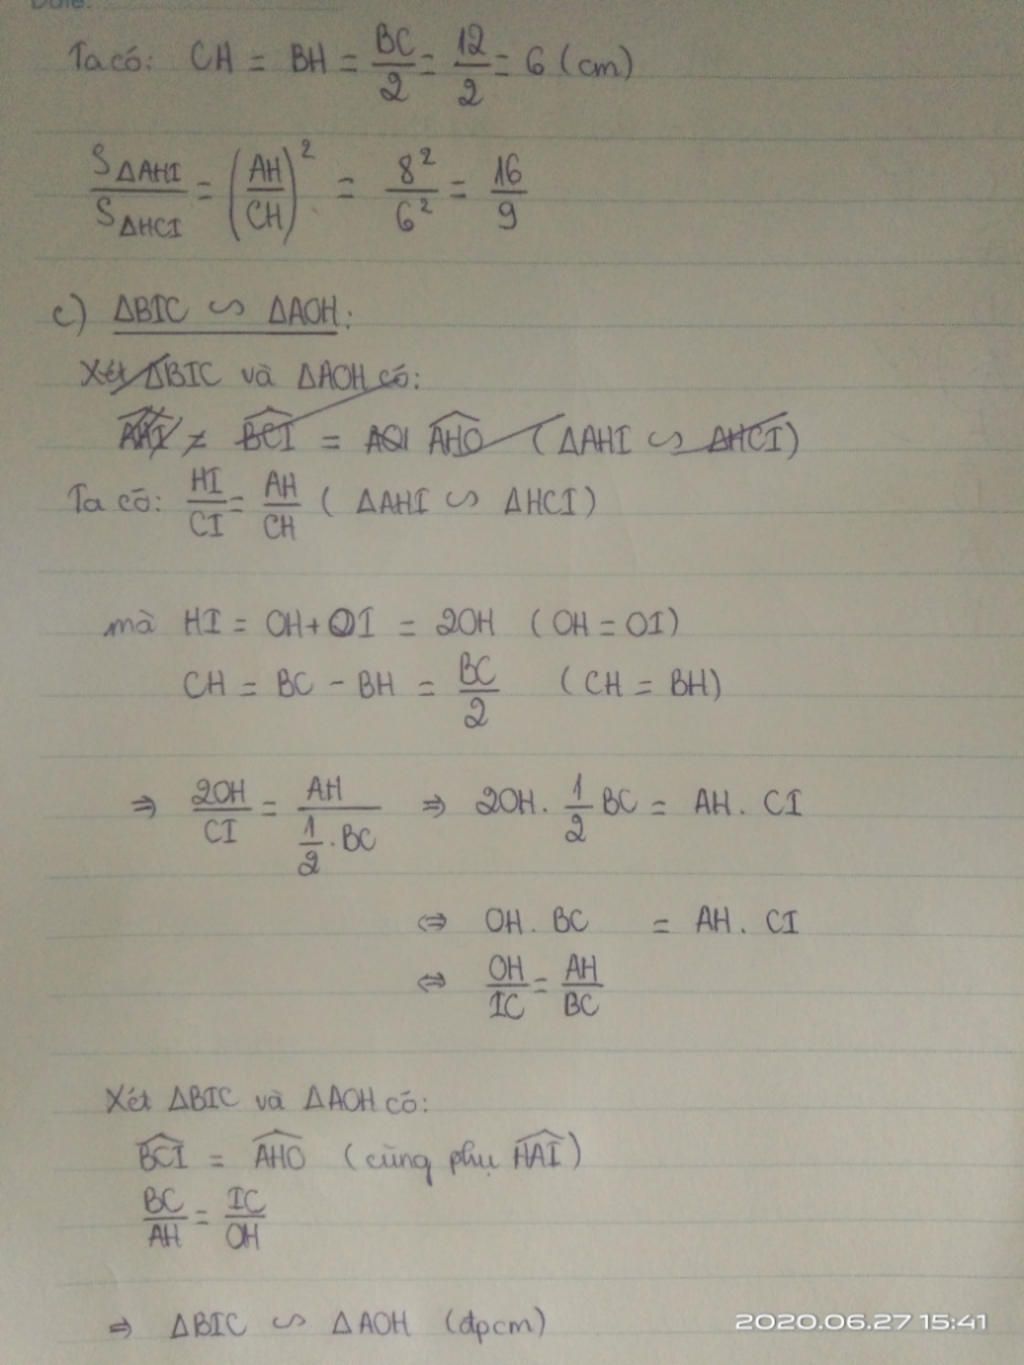 Date:
Ta có: CH = BH = BC/2 = 12/2 = 6 (cm)
S△AHI/S△HCI = (AH/CH)² = 8²/6² = 16/9
c) △BIC ∽ △AOH:
Xét △BIC và △AOH có:
BCI = AHO (△AHI ∽ △HCI)
Ta có: HI/CI = AH/CH ( △AHI ∽ △HCI)
mà HI = OH + OI = 2OH (OH = OI)
CH = BC - BH = BC/2 (CH = BH)
⇒ 2OH/CI = AH/(1/2 . BC) ⇒ 2OH . 1/2 BC = AH . CI
⇔ OH . BC = AH . CI
⇔ OH/IC = AH/BC
Xét △BIC và △AOH có:
BCI = AHO (cùng phụ HAI)
BC/AH = IC/OH
⇒ △BIC ∽ △AOH (đpcm)
2020.06.27 15:41